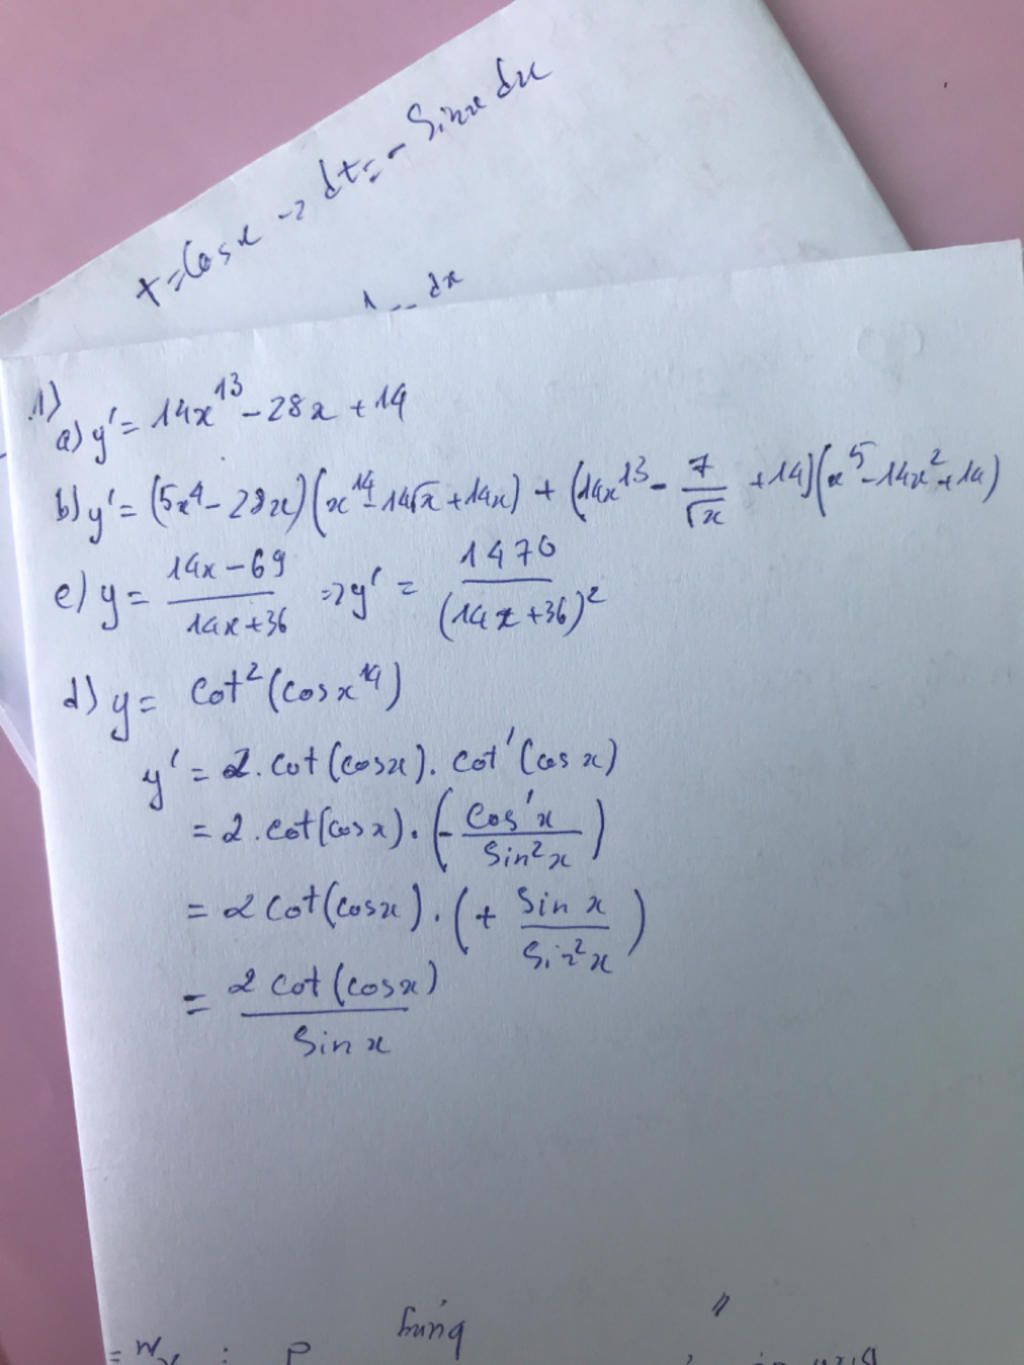 t=cosx → dt=-sinx dx
dx
1)
a) y' = 14x^13 - 28x + 14
b) y' = (5x^4 - 28x)(x^14 - 14√x + 14x) + (14x^13 - 7/√x + 14)(x^5 - 14x^2 + 14)
c) y = (14x-69)/(14x+36) => y' = 1470/(14x+36)^2
d) y = cot^2(cosx^14)
y' = 2.cot(cosx).cot'(cosx)
= 2.cot(cosx).(-cos'x/sin^2x)
= 2cot(cosx).(+ sinx/sin^2x)
= 2cot(cosx)/sinx